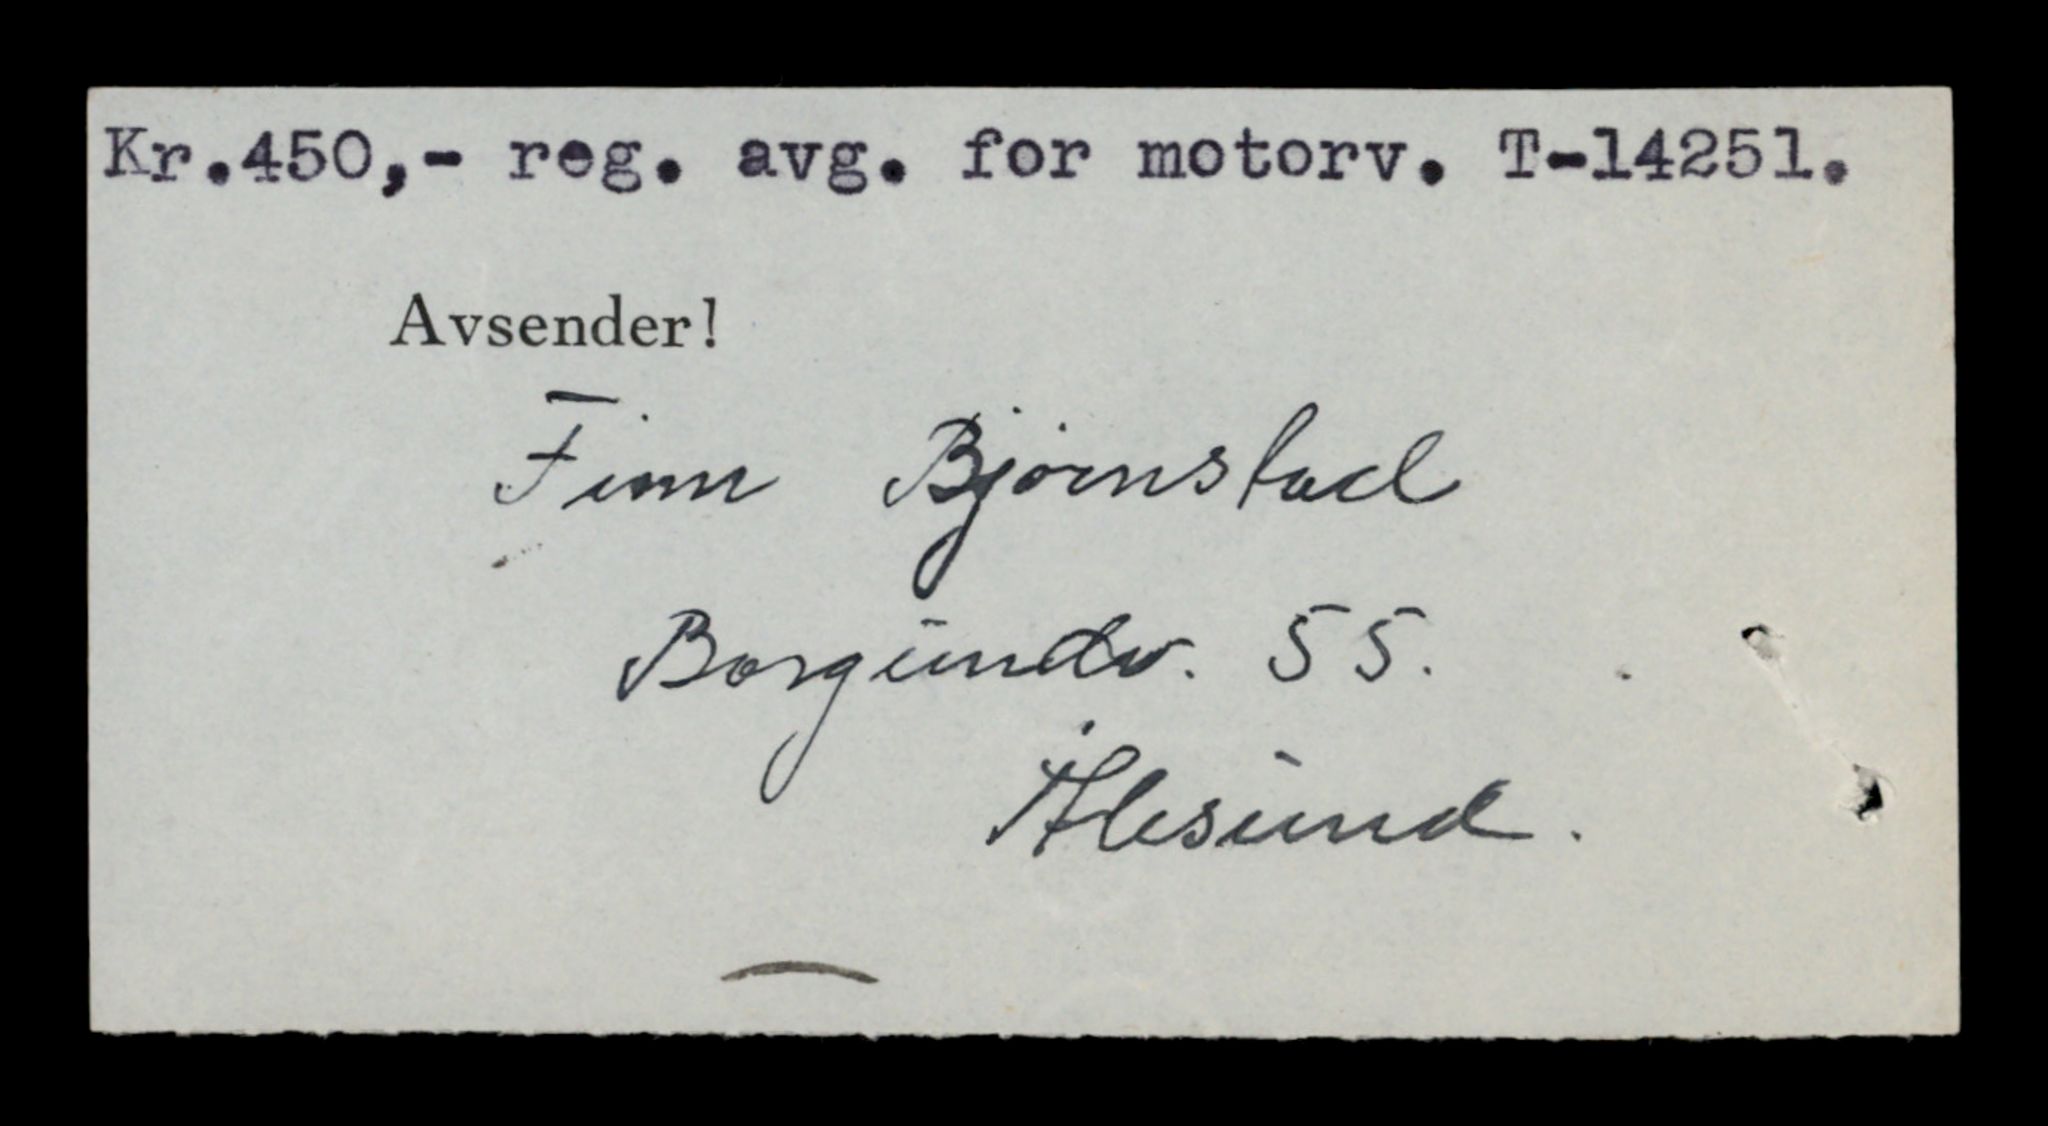 Kr.450,- reg. avg. for motorv. T-14251.
Avsender!
Finn Bjørnstad
Borgundv. 55.
Ålesund.